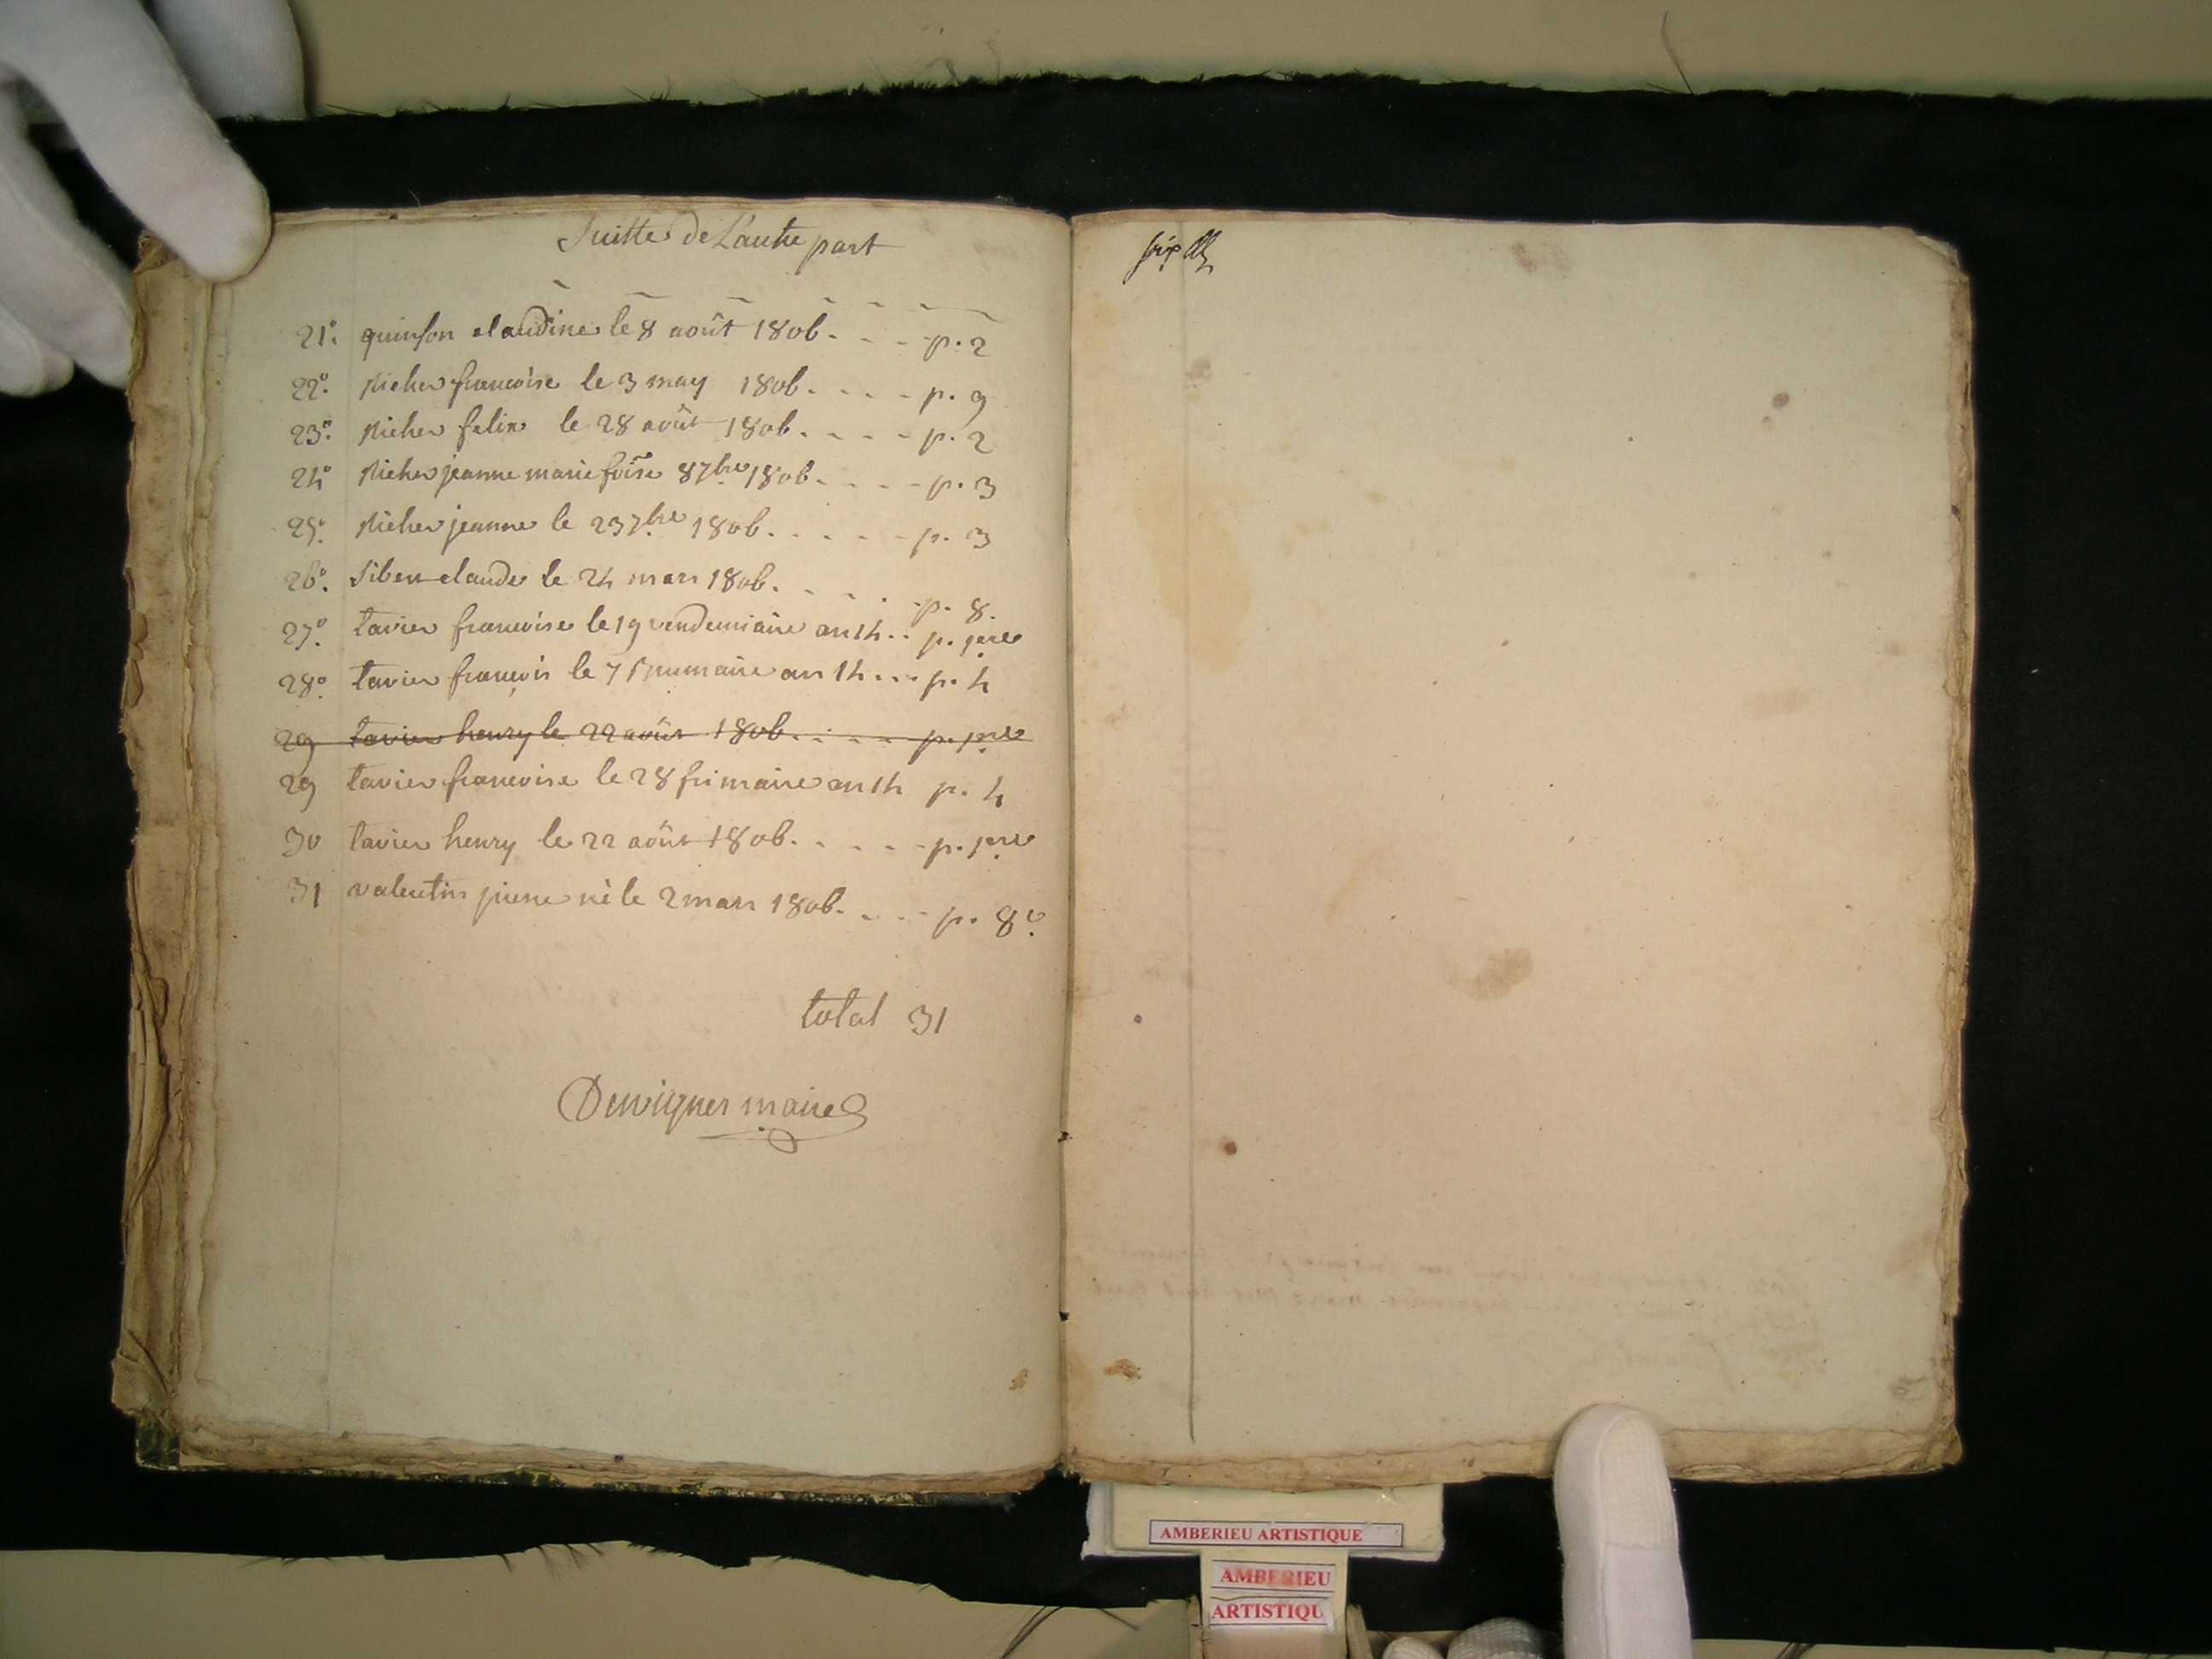 Suitte de L'autre part
21° quinson claudine le 8 août 1806 . . . p. 2
22° Richer francoise le 3 may 1806 . . . . p. 9
23° Richer felix le 28 août 1806 . . . . p. 2
24° Richer jeanne marie foise 8 7bre 1806 . . . . p. 3
25° Richer jeanne le 23 7bre 1806 . . . . . p. 3
26° Siben claude le 24 mars 1806 . . . . p. 8.
27° tavier francoise le 19 vendemiaire an 14 . . p. 1ere
28° tavier françois le 7 brumaire an 14 . . . p. 4
29 tavier henry le 22 août 1806 . . . . p. 1ere
29 tavier francoise le 28 frimaire an 14 p. 4
30 tavier henry le 22 août 1806 . . . . . p. 1ere
31 valentin pierre né le 2 mars 1806 . . . . p. 8e
total 31
maire
six
AMBERIEU ARTISTIQUE
AMBERIEU
ARTISTIQU